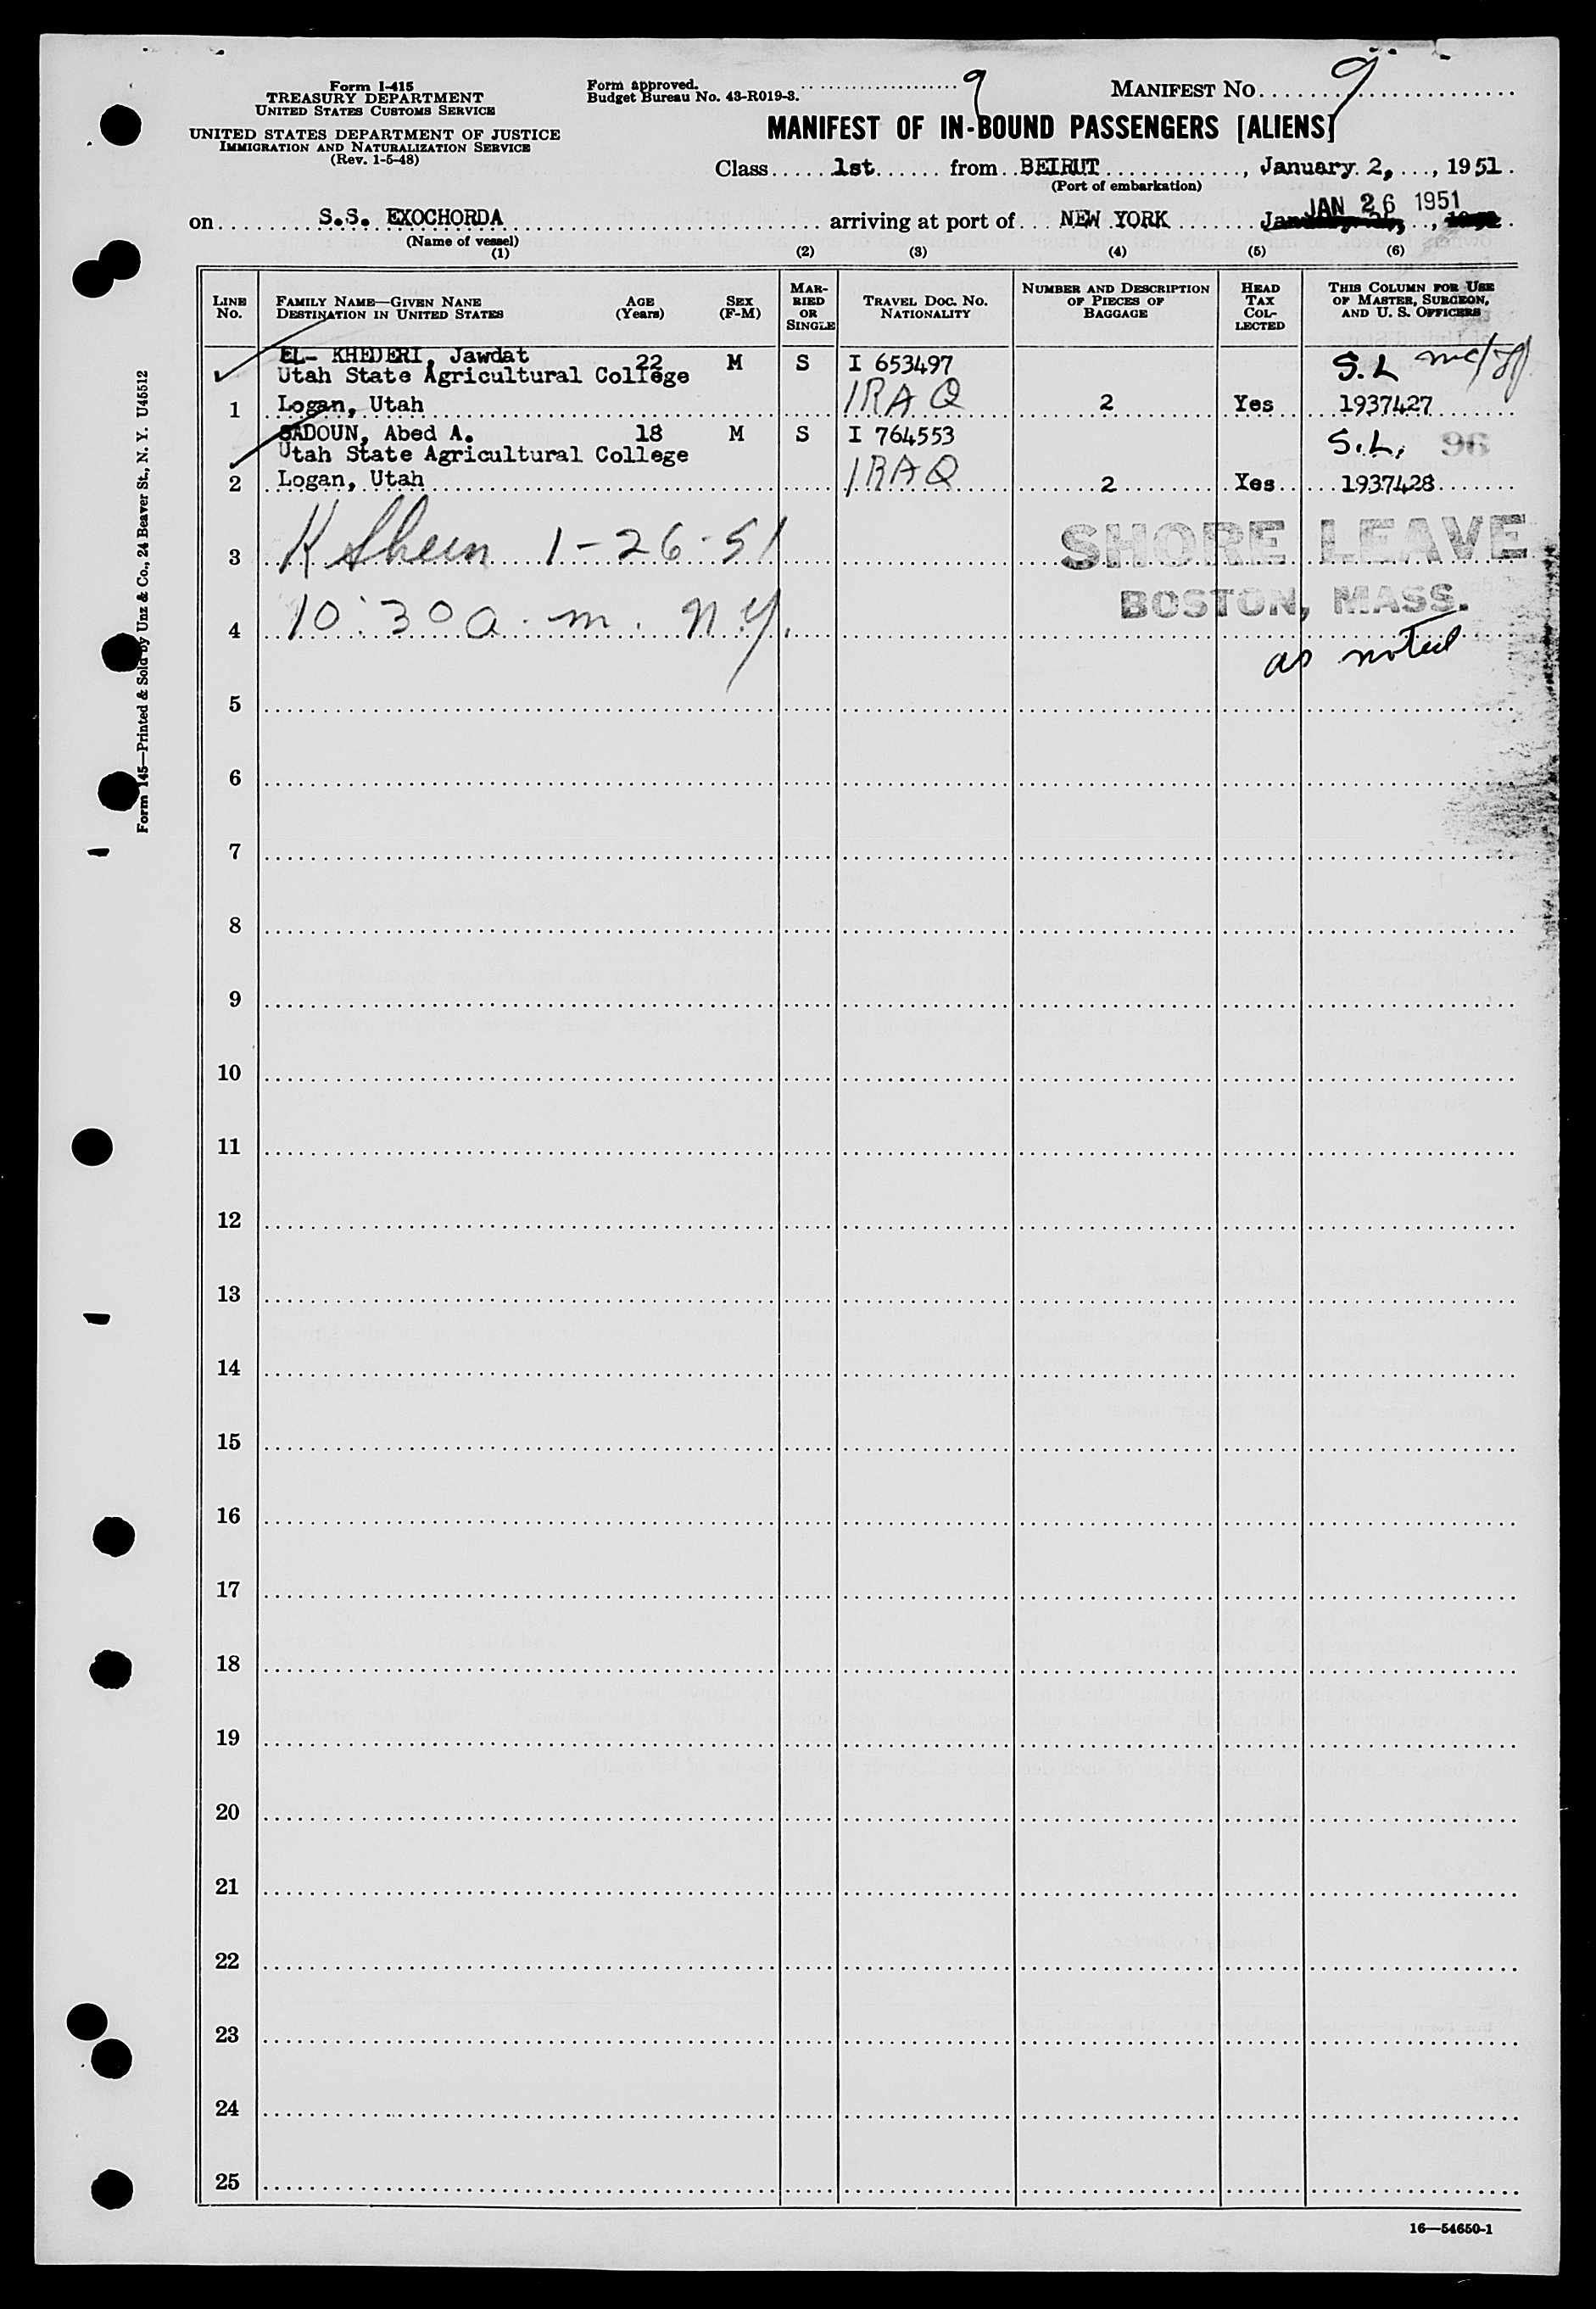 Form I-415
TREASURY DEPARTMENT
UNITED STATES CUSTOMS SERVICE
UNITED STATES DEPARTMENT OF JUSTICE
IMMIGRATION AND NATURALIZATION SERVICE
(Rev. 1-5-48)
Form approved.
Budget Bureau No. 43-R019-3.
9
MANIFEST No. 9
MANIFEST OF IN-BOUND PASSENGERS [ALIENS]
Class 1st from BEIRUT, January 2, 1951.
(Port of embarkation)
JAN 26 1951
on S.S. EXOCHORDA arriving at port of NEW YORK
(Name of vessel)
(1) (2) (3) (4) (5) (6)
LINE No. FAMILY NAME—GIVEN NANE DESTINATION IN UNITED STATES AGE (Years) SEX (F-M) MARRIED OR SINGLE TRAVEL DOC. No. NATIONALITY NUMBER AND DESCRIPTION OF PIECES OF BAGGAGE HEAD TAX COLLECTED THIS COLUMN FOR USE OF MASTER, SURGEON, AND U. S. OFFICERS
EL- KHEDERI, Jawdat 22 M S I 653497 S.L
Utah State Agricultural College
1 Logan, Utah IRAQ 2 Yes 1937427
SADOUN, Abed A. 18 M S I 764553 S.L. 96
Utah State Agricultural College
2 Logan, Utah IRAQ 2 Yes 1937428
3 K Sheen 1-26-51 SHORE LEAVE
BOSTON, MASS.
4 10:30 a.m. N.Y.
as noted
5
6
7
8
9
10
11
12
13
14
15
16
17
18
19
20
21
22
23
24
25
16—54650-1
Form 145—Printed & Sold by Unz & Co., 24 Beaver St., N. Y. U45512